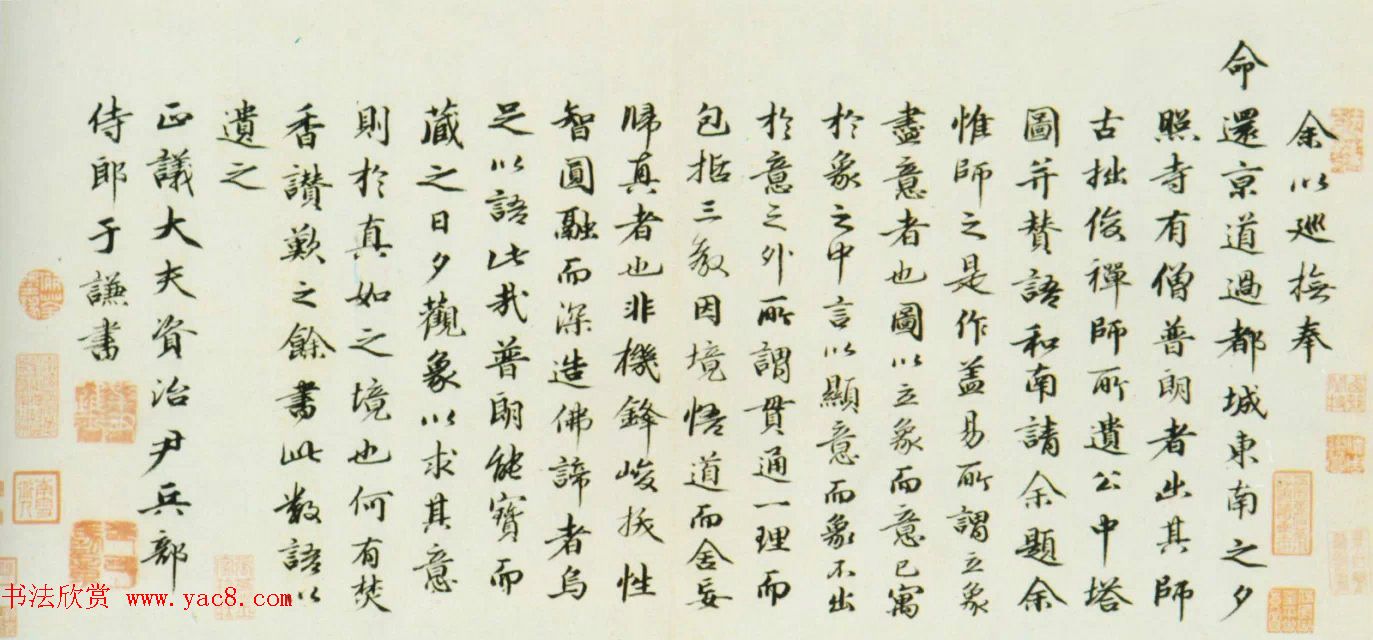 余以巡撫奉
命還京道過都城東南之夕
照寺有僧普朗者出其師
古拙俊禪師所遺公中塔
圖并賛語和南請余題余
惟師之是作盖易所謂立象
盡意者也圖以立象而意已寓
於象之中言以顯意而象不出
於意之外所謂貫通一理而
包括三教因境悟道而舍妄
歸真者也非機鋒峻拔性
智圓融而深造佛諦者烏
足以語此哉普朗能寶而
藏之日夕觀象以求其意
則於真如之境也何有焚
香讃歎之餘書此數語以
遺之
正議大夫資治尹兵部
侍郎于謙書
书法欣赏 www.yac8.com